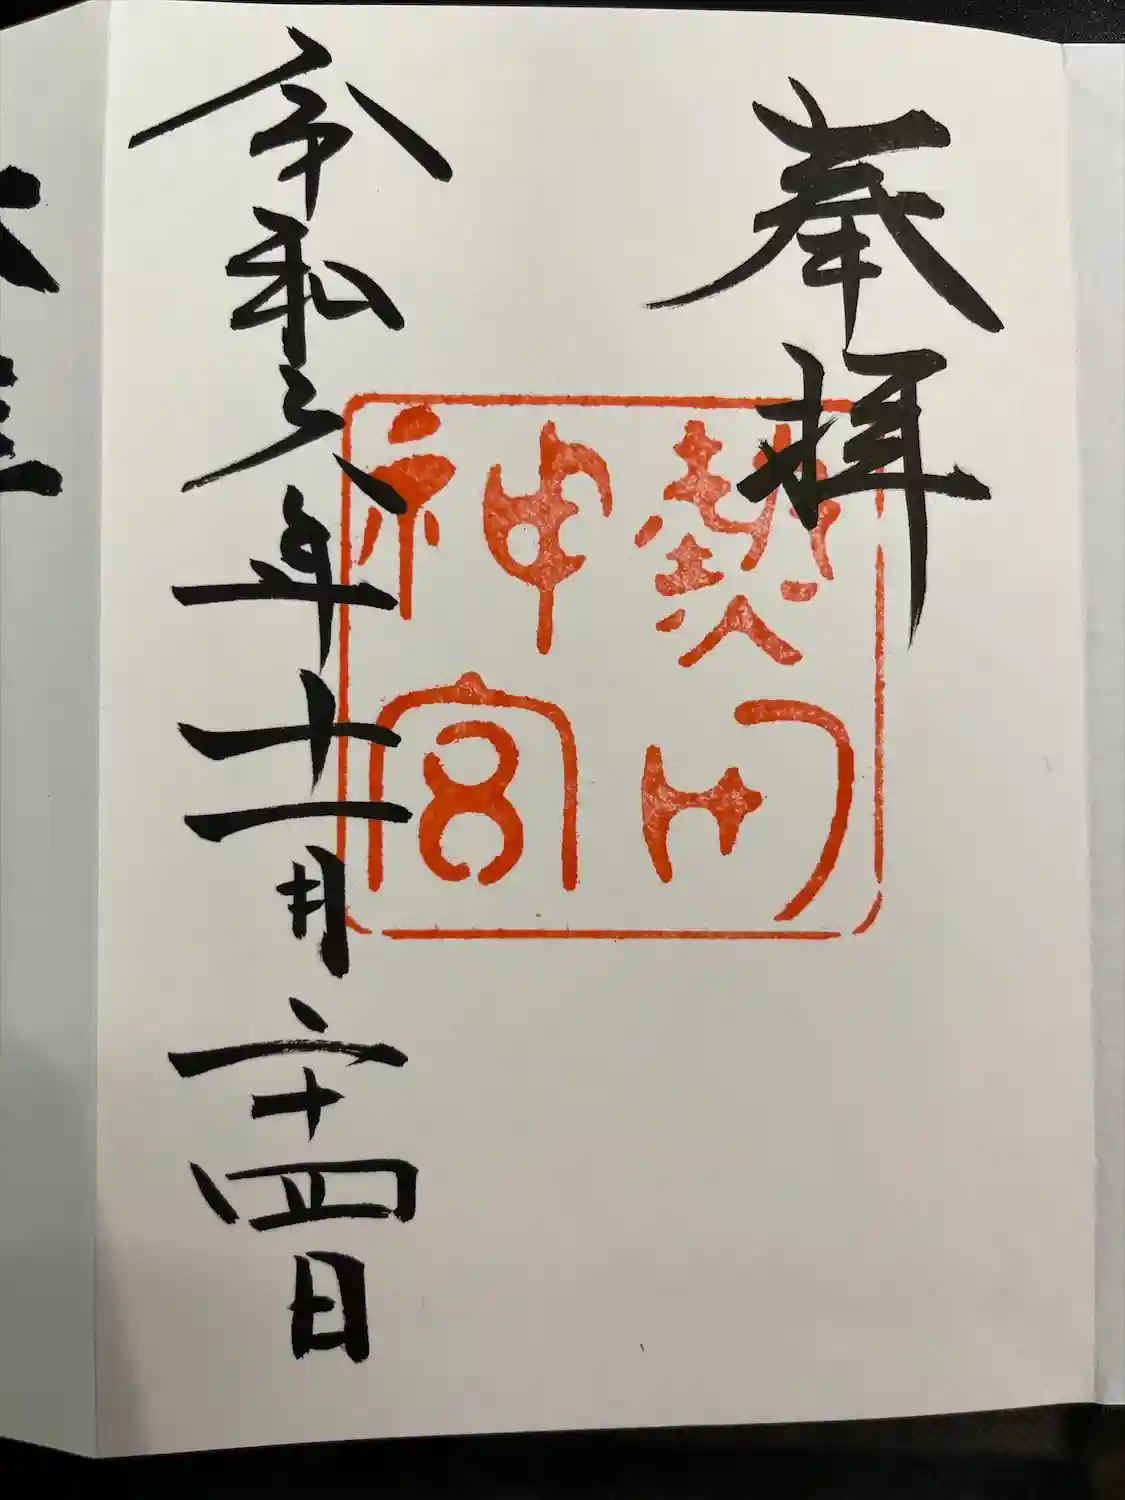 奉拝
熱田
神宮
令和六年十一月二十四日